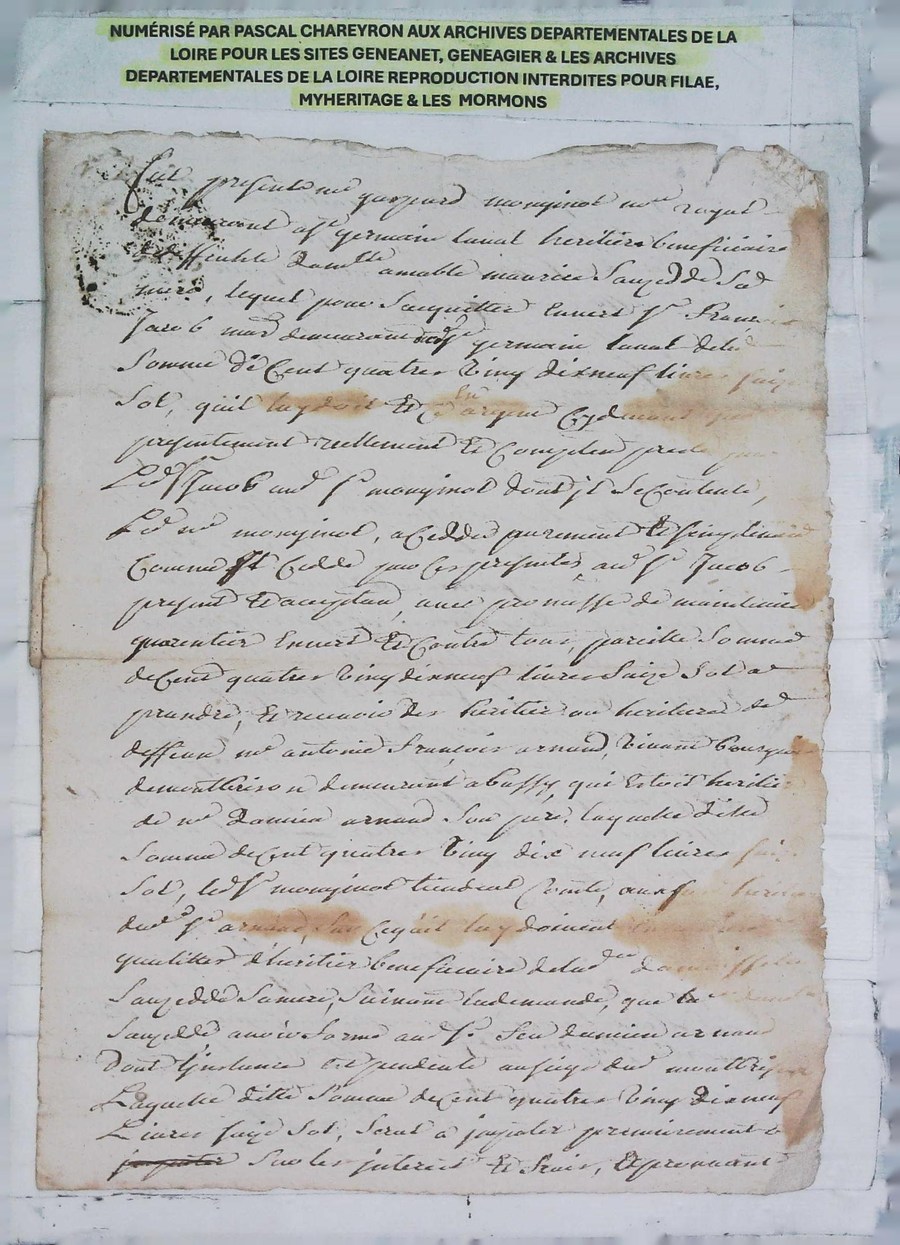 NUMÉRISÉ PAR PASCAL CHAREYRON AUX ARCHIVES DEPARTEMENTALES DE LA
LOIRE POUR LES SITES GENEANET, GENEAGIER & LES ARCHIVES
DEPARTEMENTALES DE LA LOIRE REPRODUCTION INTERDITES POUR FILAE,
MYHERITAGE & LES MORMONS
fut present me gaspard monginot me royal
demeurant a st germain laval heritier beneficiaire
de deffunte dam.lle amable maurice Sauzedde Sad
mere, lequel pour Sacquitter Envers Sr Francois
Jacob mard demeurant aud st germain laval dela
Somme de Cent quatre Ving dixneuf livres saize
Sol, quil luy doit Et argent
presentement reellement Et Compten
Led Sr Jacob aud Sr monginot dont jl Se Contente,
Led me monginot, a Ceddé purement Et Simplement
Comme Cedde par Ces presentes, aud Sr Jacob
present Et acceptan, avec promesse de maintenir
guarentier Envers Et Contre tous, pareille Somme
de Cent quatre Ving dixneuf livres Saize Sol a
prandre, Et recevoir des heritiers ou heritiere ded
deffunt me antoine François arnaud, vivant bourgeois
de montbrison demeurant a bussy, qui Estoit heritier
de me Damien arnaud Son pere, laquelle ditte
Somme de Cent quatre Ving dix neuf livres saize
Sol, led Sr monginot
dud Sr arnaud, Sur Cequil luy doivent
quallitté dheritier beneficiaire de lad
Sauzedde Samere, Suivant lademande, que
Sauzedde avoit formé aud Sr feu damien arnaud
Dont Linstance Est pendente au siege dud montbrison
Laquelle ditte Somme de Cent quatre Ving dixneuf
Livres saize Sol, Serat a jmputer premierement
Sur les jnterest Et frais, Et provenant